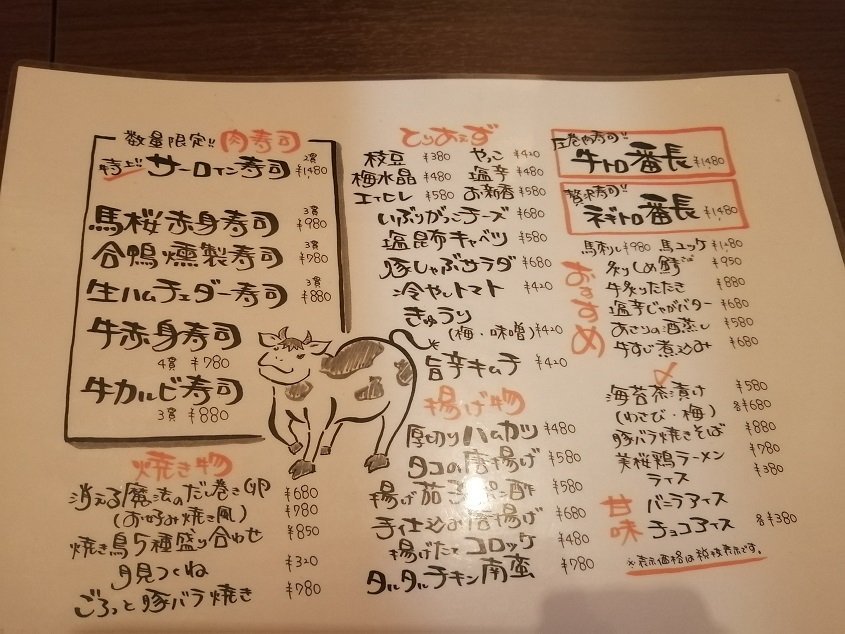 数量限定!! 肉寿司
特上!! サーロイン寿司 2貫 ¥1,480
馬桜赤身寿司 3貫 ¥980
合鴨燻製寿司 3貫 ¥780
生ハムチェダー寿司 3貫 ¥880
牛赤身寿司
4貫 ¥780
牛カルビ寿司
3貫 ¥880
焼き物
消える魔法のだし巻き卵 ¥680
(お好み焼き風) ¥780
焼き鳥5種盛り合わせ ¥850
月見つくね ¥320
ごろっと豚バラ焼き ¥780
とりあえず
枝豆 ¥380 やっこ ¥420
梅水晶 ¥480 塩辛 ¥480
エイヒレ ¥580 お新香 ¥580
いぶりがっこチーズ ¥680
塩昆布キャベツ ¥580
豚しゃぶサラダ ¥680
冷やしトマト ¥420
きゅうり
(梅・味噌) ¥420
旨辛キムチ ¥420
揚げ物
厚切りハムカツ ¥480
タコの唐揚げ ¥580
揚げ茄子ポン酢 ¥580
手仕込み唐揚げ ¥680
揚げたてコロッケ ¥480
タルタルチキン南蛮 ¥780
圧巻肉寿司!!
牛トロ番長 ¥1,480
贅沢寿司!!
ネギトロ番長 ¥1,480
馬刺し ¥980 馬ユッケ ¥1,180
おすすめ
炙りしめ鯖 ¥950
牛炙りたたき ¥880
塩辛じゃがバター ¥680
あさりの酒蒸し ¥580
牛すじ煮込み ¥680
〆
海苔茶漬け ¥580
(わさび・梅) 各¥680
豚バラ焼きそば ¥880
美桜鶏ラーメン ¥780
ライス ¥380
甘味
バニラアイス
チョコアイス 各¥380
※表示価格は税抜表示です。